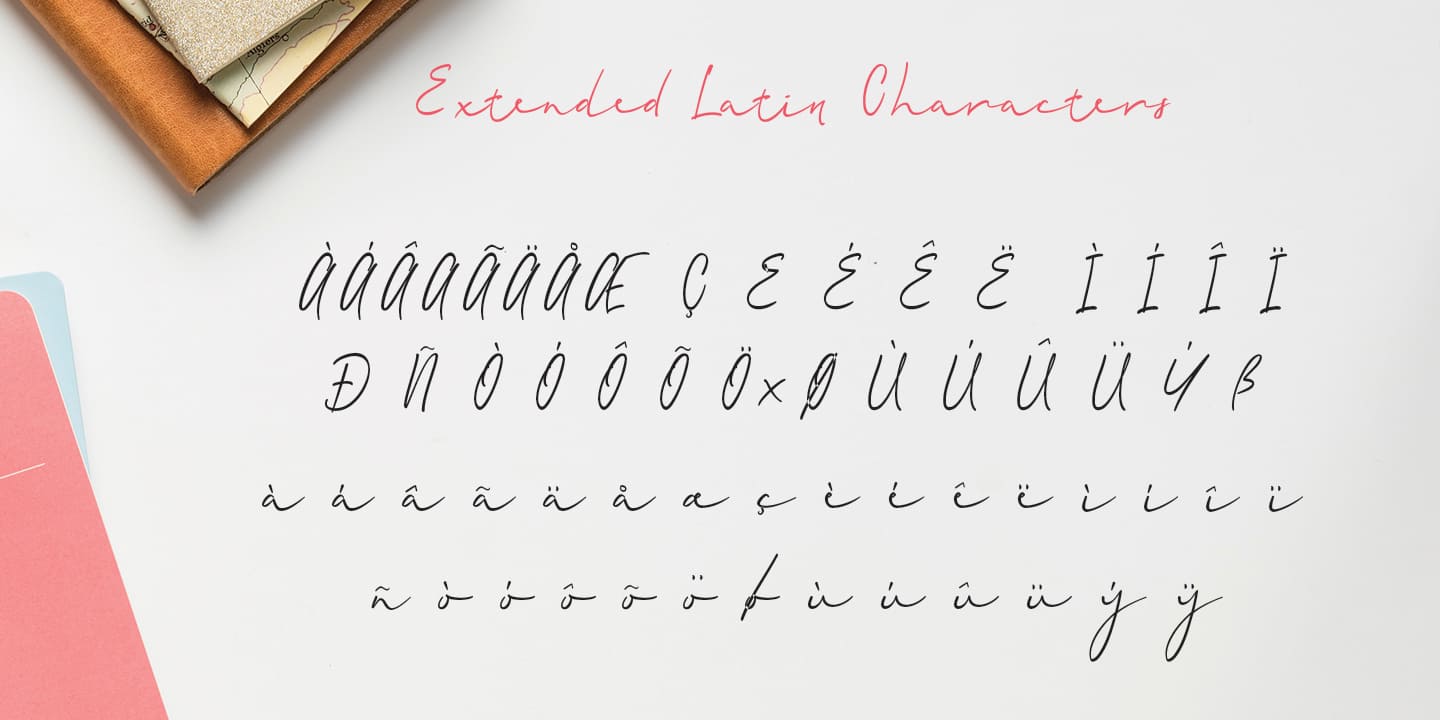 Angiers
Extended Latin Characters
ÀÁÂAÃÄÅÆ Ç E É Ê Ë Ì Í Î Ï
Ð Ñ Ò Ó Ô Õ Ö x Ø Ù Ú Û Ü Ý ß
à á â ã ä å æ ç è é ê ë ì í î ï
ñ ò ó ô õ ö ø ù ú û ü ý ÿ